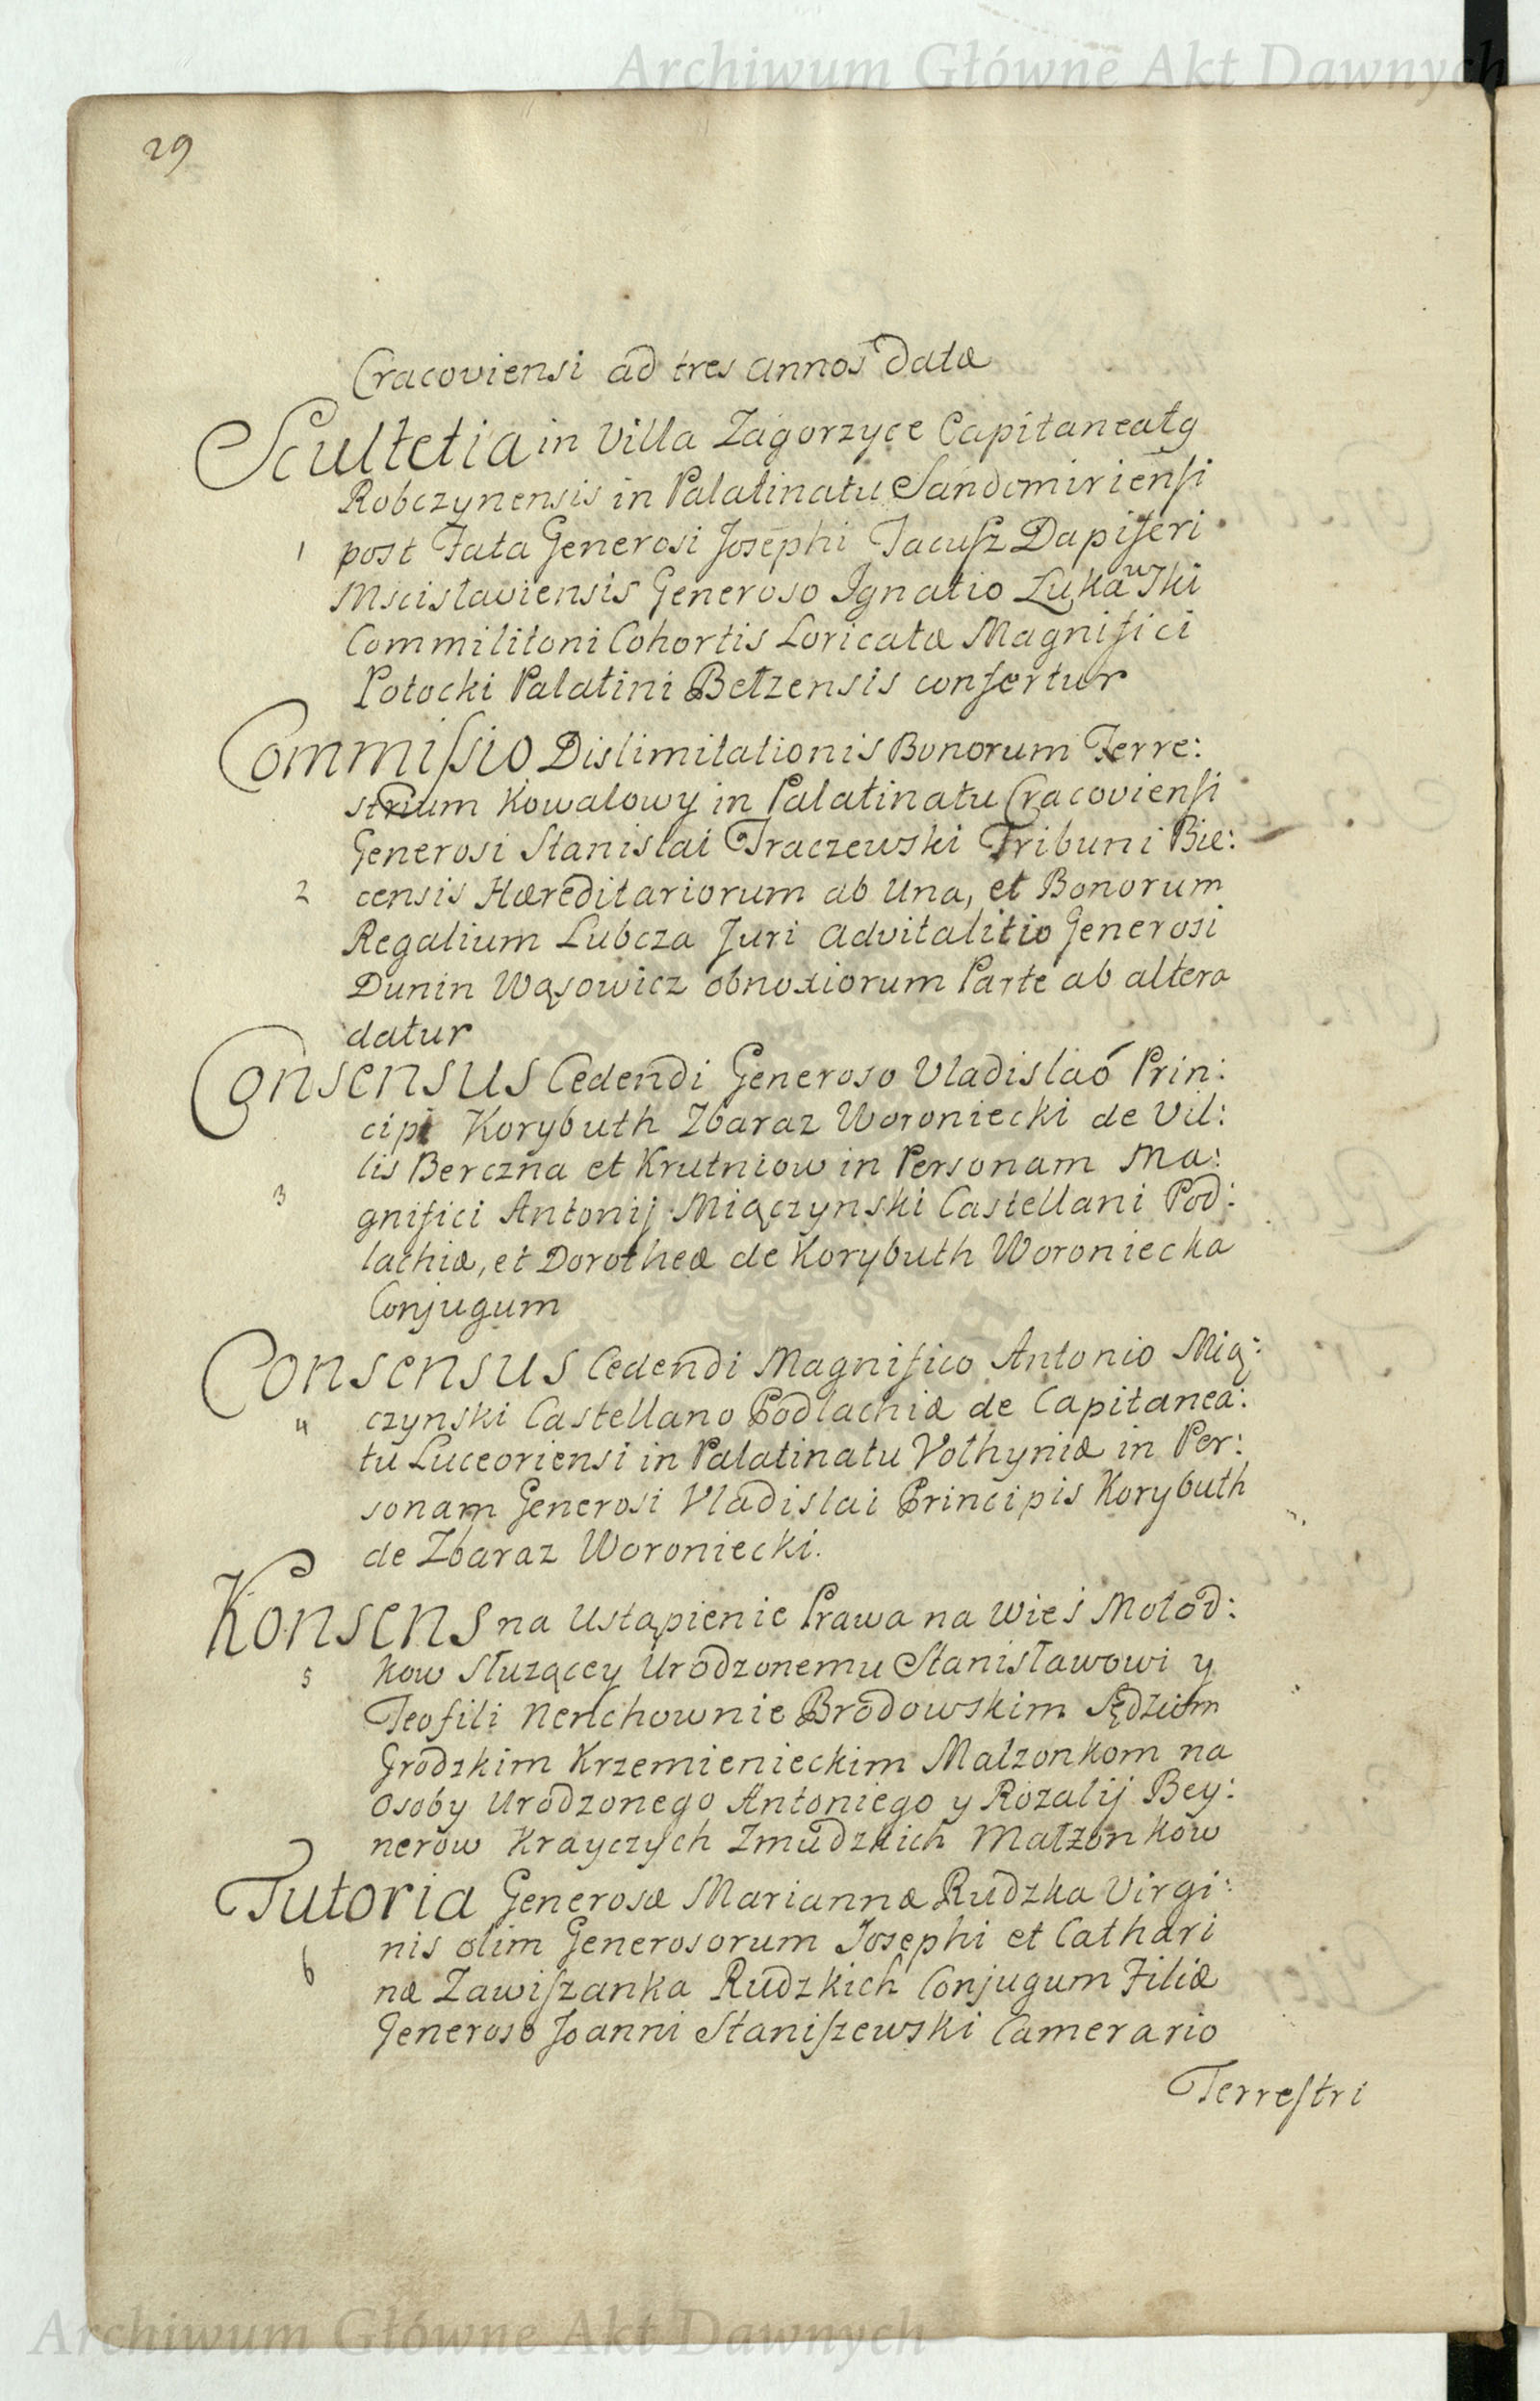 Archiwum Główne Akt Dawnych
29
Cracoviensi ad tres annos data
Scultetia in Villa Zagorzyce Capitaneatg
Robczynensis in Palatinatu Sandomiriensi
1 post Fata Generosi Josephi Jacusz Dapiferi
Mscislaviensis Generoso Ignatio Lukawski
Commilitoni Cohortis Loricatæ Magnifici
Potocki Palatini Bełzensis confertur
Commissio Dislimitationis Bonorum Terre:
strium Kowalowy in Palatinatu Cracoviensi
Generosi Stanislai Traczewski Tribuni Bie:
2 censis Hæreditariorum ab Una, et Bonorum
Regalium Lubcza Juri advitalitio Generosi
Dunin Wąsowicz obnoxiorum Parte ab altera
datur
Consensus Cedendi Generoso Vladislao Prin:
cipi Korybuth Zbaraz Woroniecki de Vil:
lis Berczna et Krutniow in Personam Ma:
3 gnifici Antonij Miączynski Castellani Pod:
lachiæ, et Dorotheæ de Korybuth Woroniecka
Conjugum
Consensus Cedendi Magnifico Antonio Mią:
4 czynski Castellano Podlachiæ de Capitanea:
tu Luceoriensi in Palatinatu Volhyniæ in Per:
sonam Generosi Vladislai Principis Korybuth
de Zbaraz Woroniecki.
Konsens na Ustąpienie Prawa na Wieś Mołod:
5 kow Słuzącey Urodzonemu Stanisławowi y
Teofili Nenchownie Brodowskim Sędziom
Grodzkim Krzemienieckim Malzonkom na
Osoby Urodzonego Antoniego y Rozalij Bey:
nerow Krayczych Zmudzkich Małzonkow
Tutoria Generosæ Mariannæ Rudzka Virgi:
nis olim Generosorum Josephi et Cathari
6 næ Zawiszanka Rudzkich Conjugum Filiæ
Generoso Joanni Staniszewski Camerario
Terrestri
Archiwum Główne Akt Dawnych